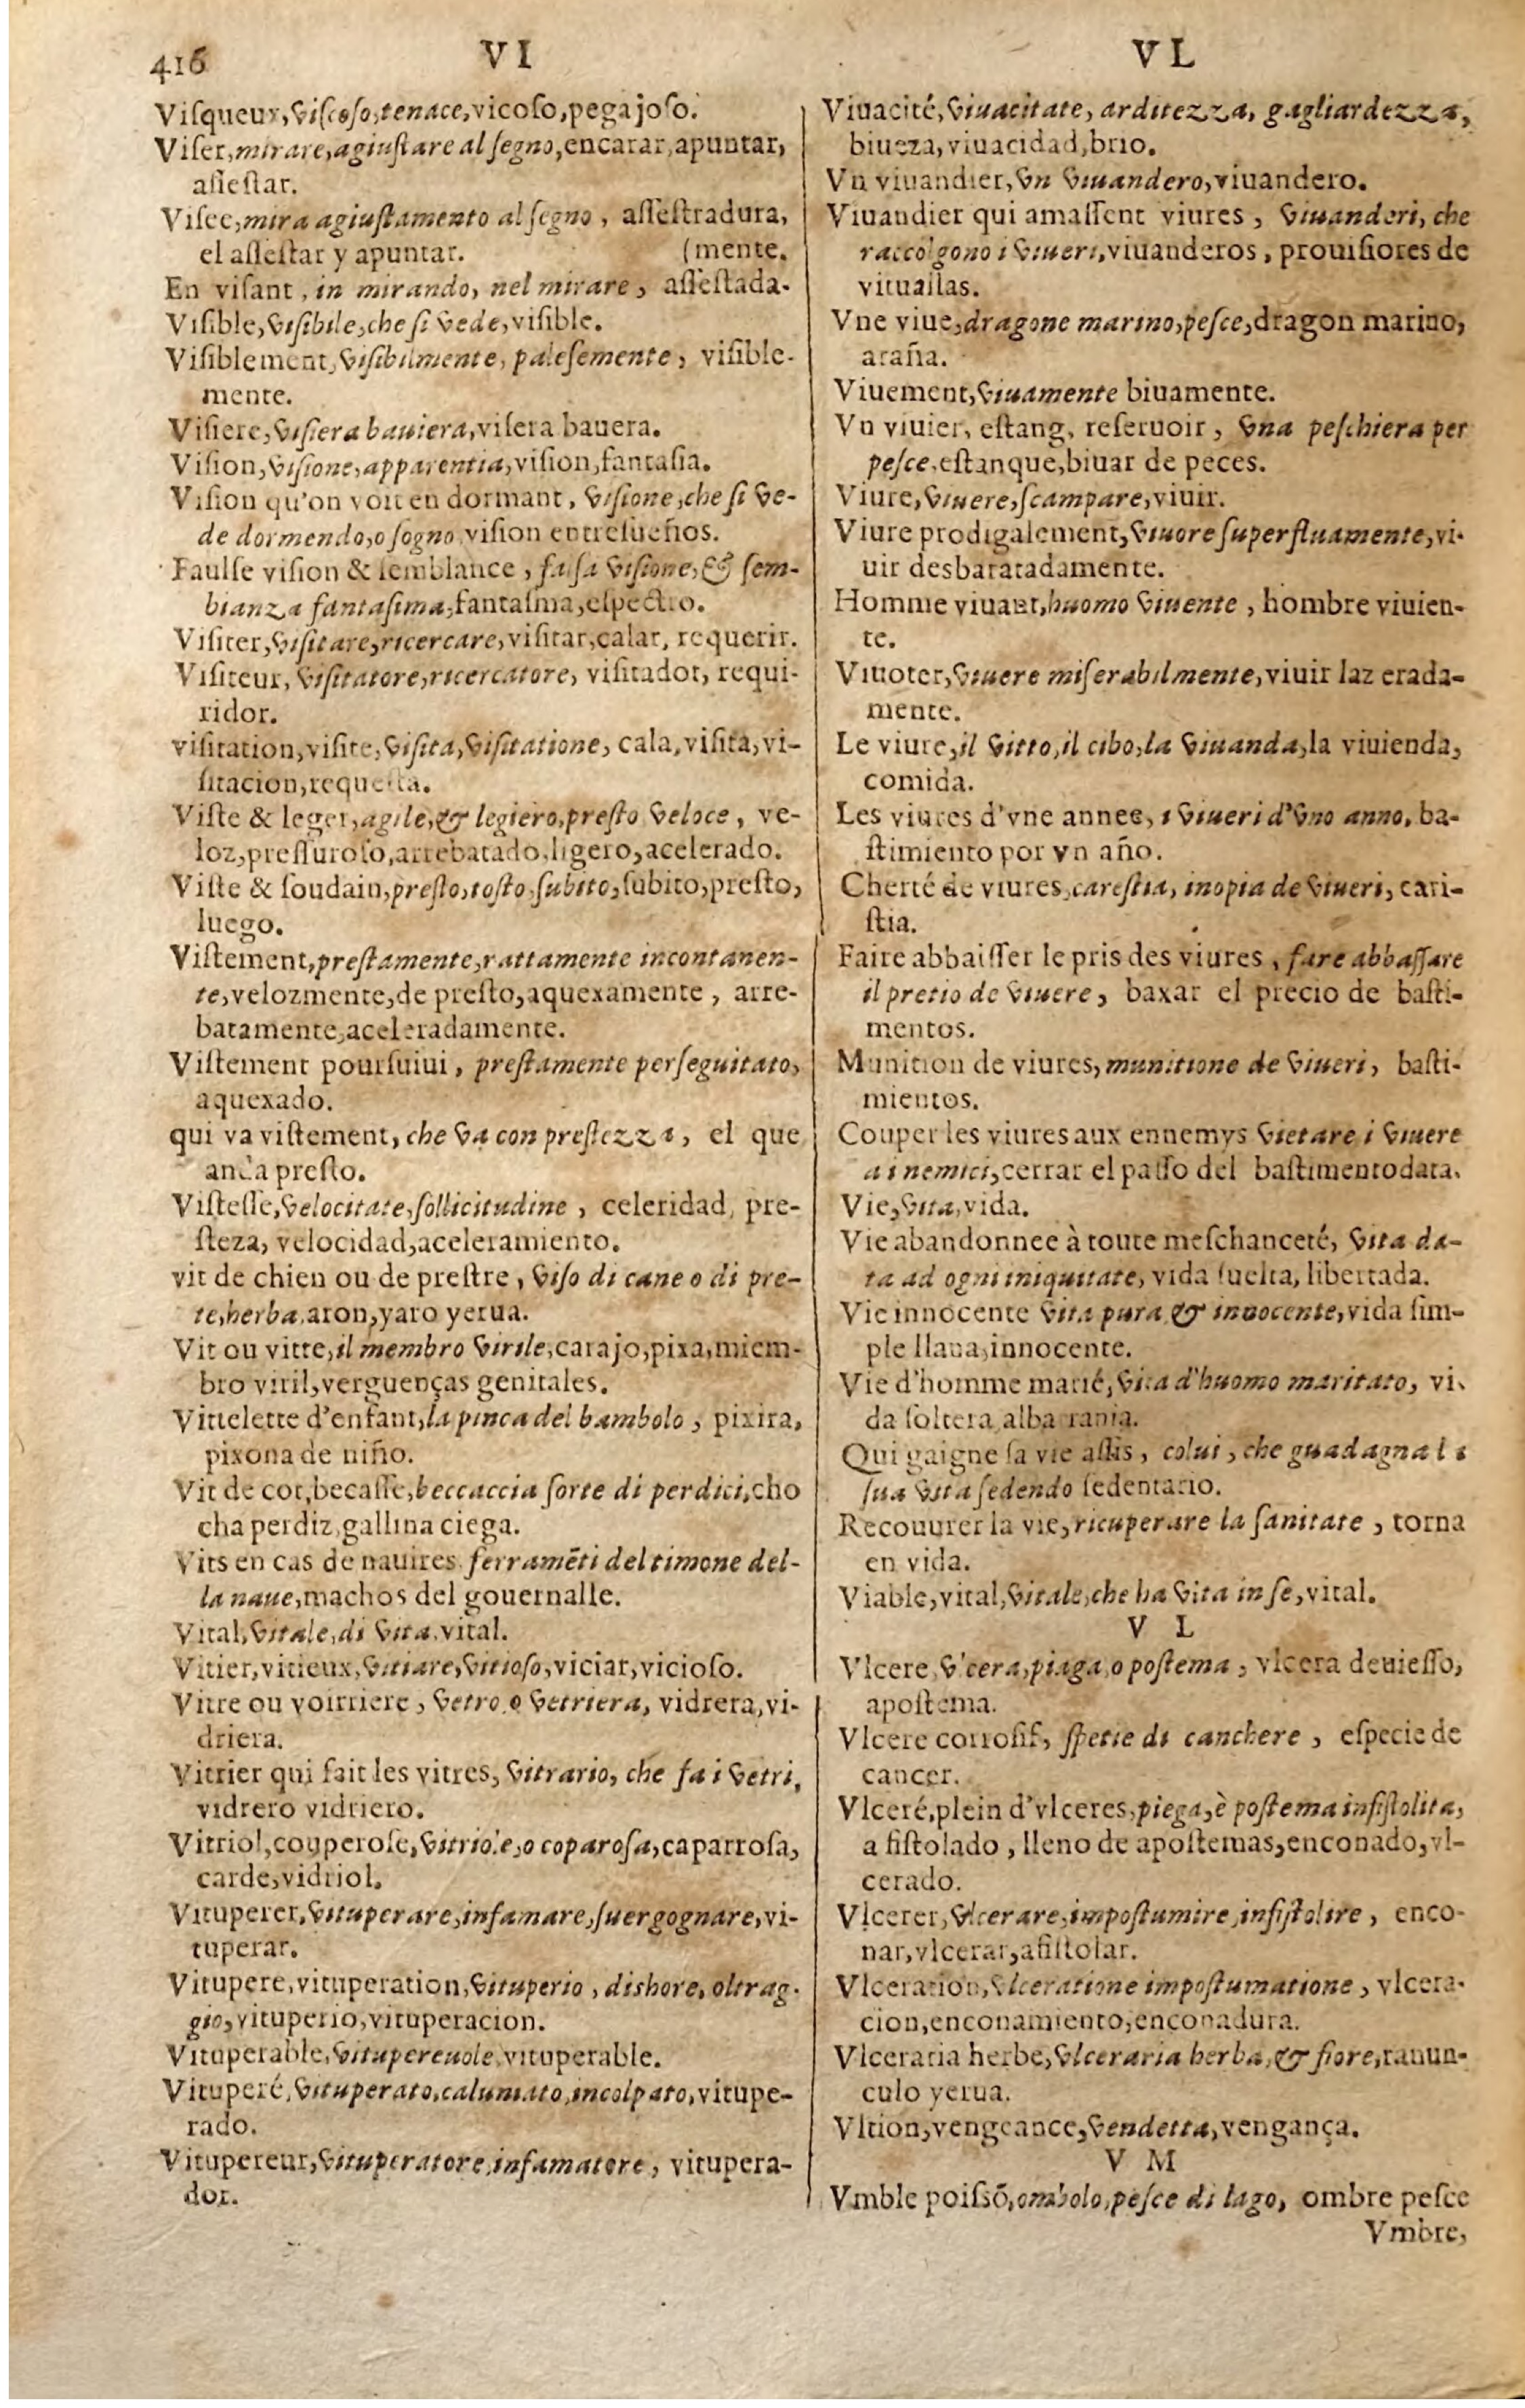 416
VI
VL
Viſqueux, viſcoſo, tenace, vicoſo, pegajoſo.
Viſer, mirare, agiuſtare al ſegno, encarar, apuntar,
aſſeſtar.
Viſee, mira agiuſtamento al ſegno, aſſeſtradura,
el aſſeſtar y apuntar. (mente.
En viſant, in mirando, nel mirare, aſſeſtada-
Viſible, viſibile, che ſi vede, viſible.
Viſiblement, viſibilmente, paleſemente, viſible-
mente.
Viſiere, viſiera bauiera, viſera bauera.
Viſion, viſione, apparentia, viſion, fantaſia.
Viſion qu'on voit en dormant, viſione, che ſi ve-
de dormendo, o ſogno viſion entreſueños.
Faulſe viſion & ſemblance, falſa viſione, & ſem-
bianza fantaſima, fantaſma, eſpectro.
Viſiter, viſitare, ricercare, viſitar, calar, requerir.
Viſiteur, viſitatore, ricercatore, viſitador, requi-
ridor.
viſitation, viſite, viſita, viſitatione, cala, viſita, vi-
ſitacion, requeſta.
Viſte & leger, agile, & legiero, preſto veloce, ve-
loz, preſſuroſo, arrebatado, ligero, acelerado.
Viſte & ſoudain, preſto, toſto, ſubito, ſubito, preſto,
luego.
Viſtement, preſtamente, rattamente incontanen-
te, velozmente, de preſto, aquexamente, arre-
batamente, aceleradamente.
Viſtement pourſuiui, preſtamente perſeguitato,
aquexado.
qui va viſtement, che va con preſtezza, el que
anda preſto.
Viſteſſe, velocitate, ſollicitudine, celeridad, pre-
ſteza, velocidad, aceleramiento.
vit de chien ou de preſtre, viſo di cane o di pre-
te, herba, aron, yaro yerua.
Vit ou vitte, il membro virile, carajo, pixa, miem-
bro viril, verguenças genitales.
Vittelette d'enfant, la pinca del bambolo, pixira,
pixona de niño.
Vit de coc, becaſſe, beccaccia ſorte di perdici, cho
cha perdiz, gallina ciega.
Vits en cas de nauires ferramẽti del timone del-
la naue, machos del gouernalle.
Vital, vitale, di vita, vital.
Vitier, vitieux, vitiare, vitioſo, viciar, vicioſo.
Vitre ou voirriere, vetro, o vetriera, vidrera, vi-
driera.
Vitrier qui fait les vitres, vitrario, che fa i vetri,
vidrero vidriero.
Vitriol, couperoſe, vitriole, o coparoſa, caparroſa,
carde, vidriol.
Vituperer, vituperare, infamare, ſuergognare, vi-
tuperar.
Vitupere, vituperation, vituperio, dishore, oltrag-
gio, vituperio, vituperacion.
Vituperable, vitupereuole, vituperable.
Vituperé, vituperato, calumato, incolpato, vitupe-
rado.
Vitupereur, vituperatore, infamatore, vitupera-
dor.
Viuacité, viuacitate, arditezza, gagliardezza,
biueza, viuacidad, brio.
Vn viuandier, vn viuandero, viuandero.
Viuandier qui amaſſent viures, viuanderi, che
raccolgono i viueri, viuanderos, prouiſiores de
vituallas.
Vne viue, dragone marino, peſce, dragon marino,
araña.
Viuement, viuamente biuamente.
Vn viuier, eſtang, reſeruoir, vna peſchiera per
peſce, eſtanque, biuar de peces.
Viure, viuere, ſcampare, viuir.
Viure prodigalement, viuore ſuperfluamente, vi-
uir desbaratadamente.
Homme viuant, huomo viuente, hombre viuien-
te.
Viuoter, viuere miſerabilmente, viuir laz erada-
mente.
Le viure, il vitto, il cibo, la viuanda, la viuienda,
comida.
Les viures d'vne annee, i viueri d'vno anno, ba-
ſtimiento por vn año.
Cherté de viures, careſtia, inopia de viueri, cari-
ſtia.
Faire abbaiſſer le pris des viures, fare abbaſſare
il pretio de viuere, baxar el precio de baſti-
mentos.
Munition de viures, munitione de viueri, baſti-
mientos.
Couper les viures aux ennemys vietare i viuere
a i nemici, cerrar el paſſo del baſtimentodata.
Vie, vita, vida.
Vie abandonnee à toute meſchanceté, vita da-
ta ad ogni iniquitate, vida ſuelta, libertada.
Vie innocente vita pura & innocente, vida ſim-
ple llana, innocente.
Vie d'homme marié, vita d'huomo maritato, vi-
da ſoltera alba rania.
Qui gaigne ſa vie aſſis, colui, che guadagna la
ſua vita ſedendo ſedentario.
Recouurer la vie, ricuperare la ſanitate, torna
en vida.
Viable, vital, vitale, che ha vita in ſe, vital.
V L
Vlcere, vlcera, piaga, o poſtema, vlcera deuieſſo,
apoſtema.
Vlcere corroſif, ſpetie di canchere, eſpecie de
cancer.
Vlceré, plein d'vlceres, piega, è poſtema infiſtolita,
a fiſtolado, lleno de apoſtemas, enconado, vl-
cerado.
Vlcerer, vlcerare, impoſtumire, infiſtolire, enco-
nar, vlcerar, afiſtolar.
Vlceration, vlceratione impoſtumatione, vlcera-
cion, enconamiento, enconadura.
Vlceraria herbe, vlceraria herba, & fiore, ranun-
culo yerua.
Vltion, vengeance, vendetta, vengança.
V M
Vmble poiſsõ, ombolo, peſce di lago, ombre peſce
Vmbre,